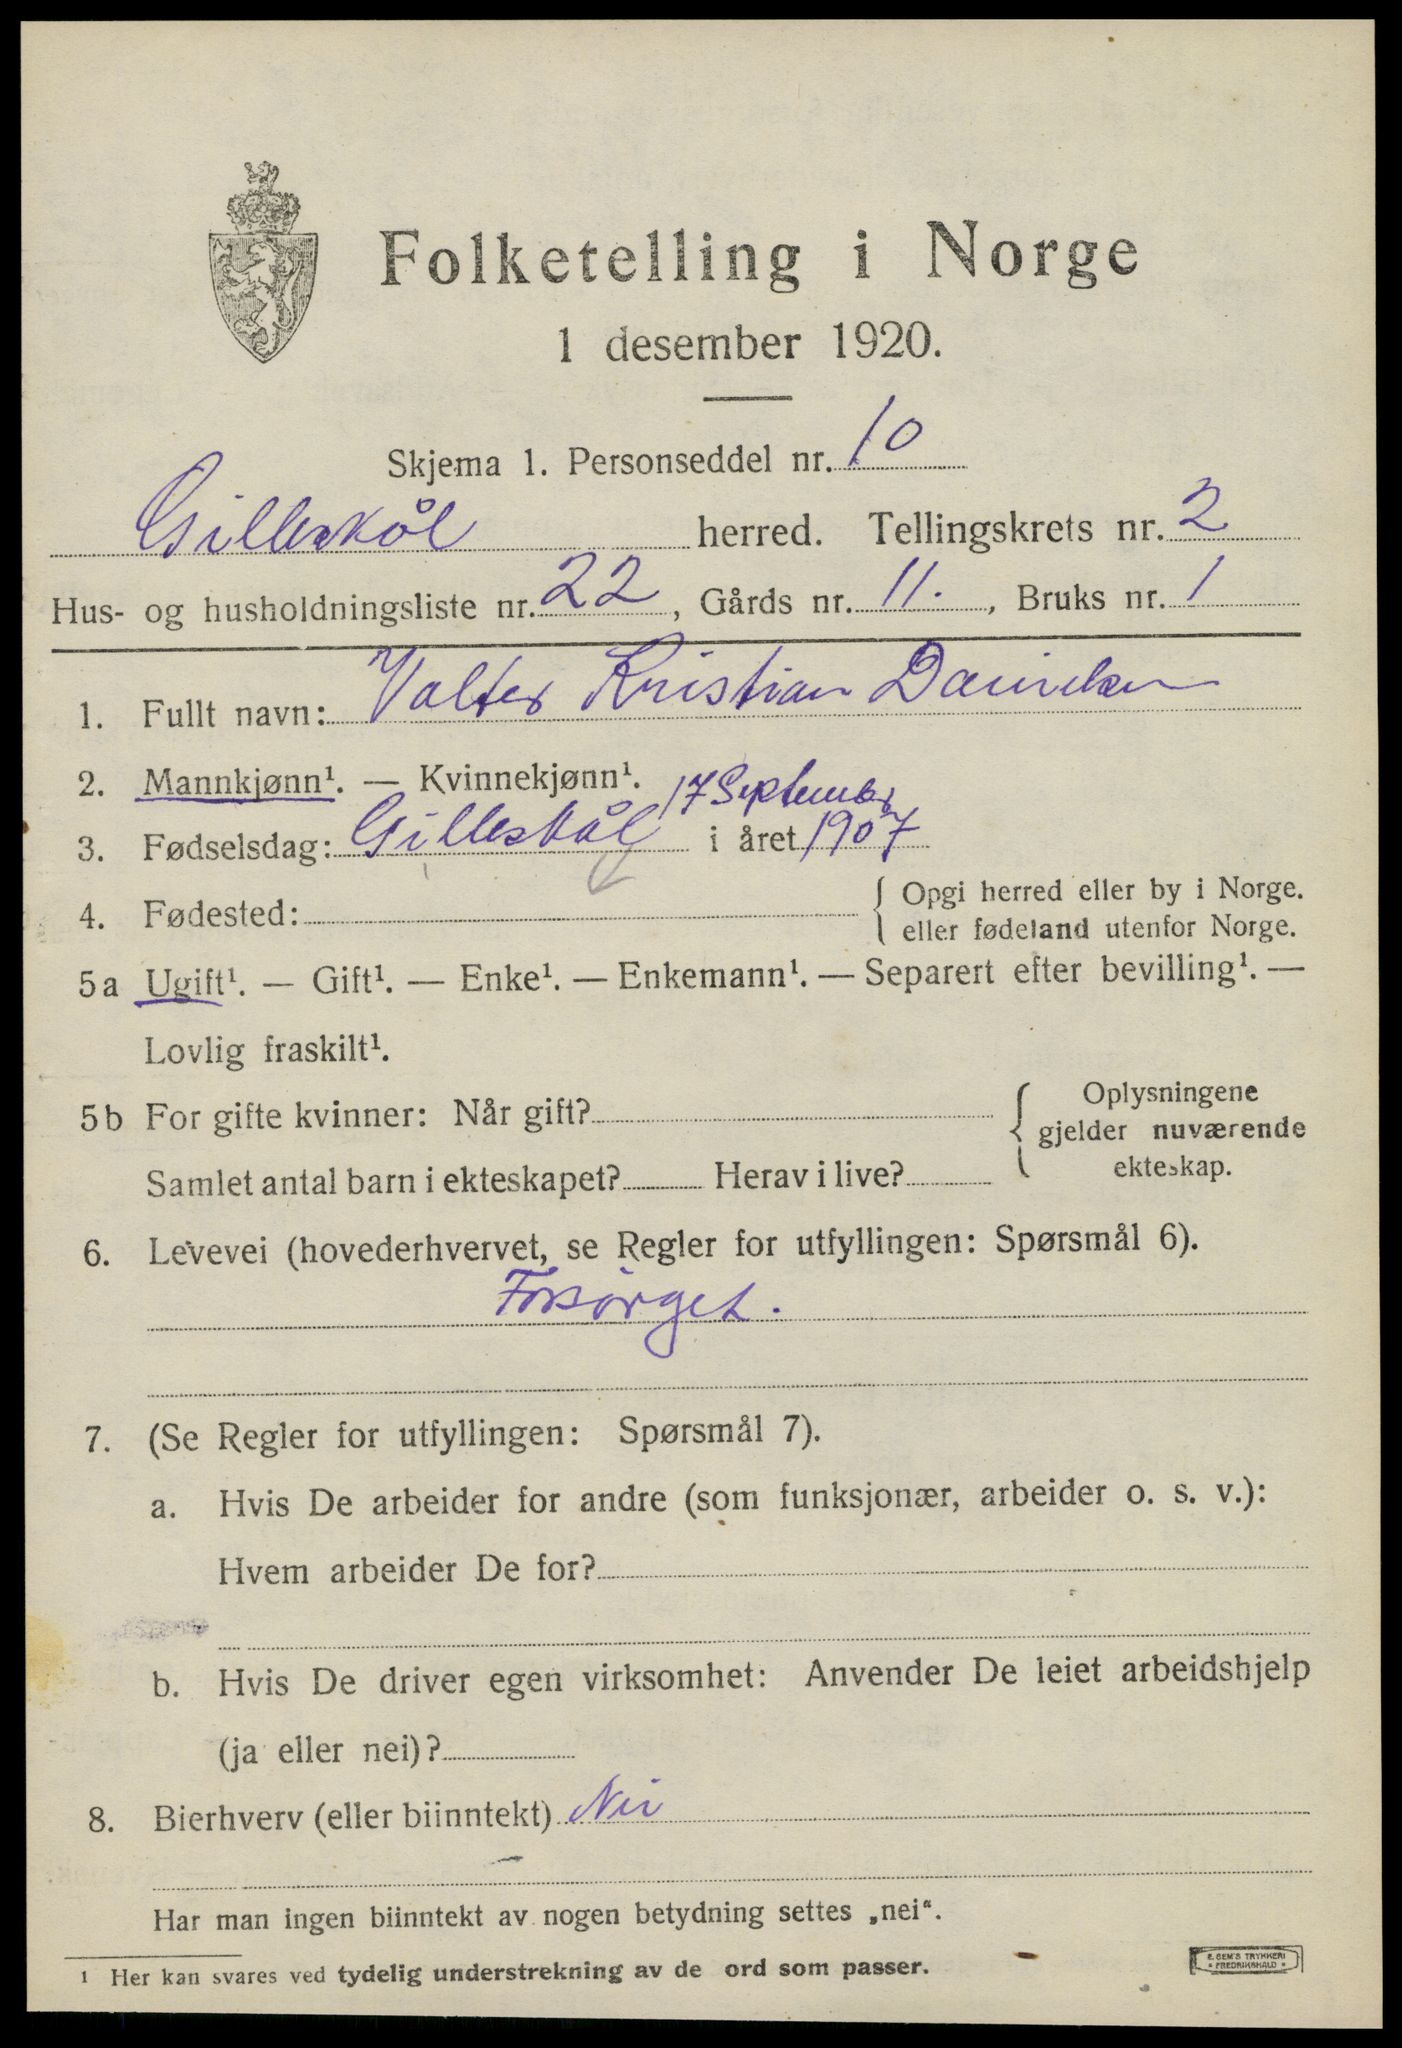 Folketelling i Norge
1 desember 1920.
Skjema 1. Personseddel nr. 10
Gilleskål herred. Tellingskrets nr. 2
Hus- og husholdningsliste nr. 22, Gårds nr. 11., Bruks nr. 1
1. Fullt navn: Valter Kristian
2. Mannkjønn¹. — Kvinnekjønn¹. 17 September
3. Fødselsdag: Gilleskål i året 1907
4. Fødested: { Opgi herred eller by i Norge.
eller fødeland utenfor Norge.
5a Ugift¹. — Gift¹. — Enke¹. — Enkemann¹. — Separert efter bevilling¹. —
Lovlig fraskilt¹.
5b For gifte kvinner: Når gift? { Oplysningene
gjelder nuværende
Samlet antal barn i ekteskapet? Herav i live? ekteskap.
6. Levevei (hovederhvervet, se Regler for utfyllingen: Spørsmål 6).
Forsørget.
7. (Se Regler for utfyllingen: Spørsmål 7).
a. Hvis De arbeider for andre (som funksjonær, arbeider o. s. v.):
Hvem arbeider De for?
b. Hvis De driver egen virksomhet: Anvender De leiet arbeidshjelp
(ja eller nei)?
8. Bierhverv (eller biinntekt) Nei
Har man ingen biinntekt av nogen betydning settes „nei“.
¹ Her kan svares ved tydelig understrekning av de ord som passer.
E. SEM'S TRYKKERI
FREDRIKSHALD